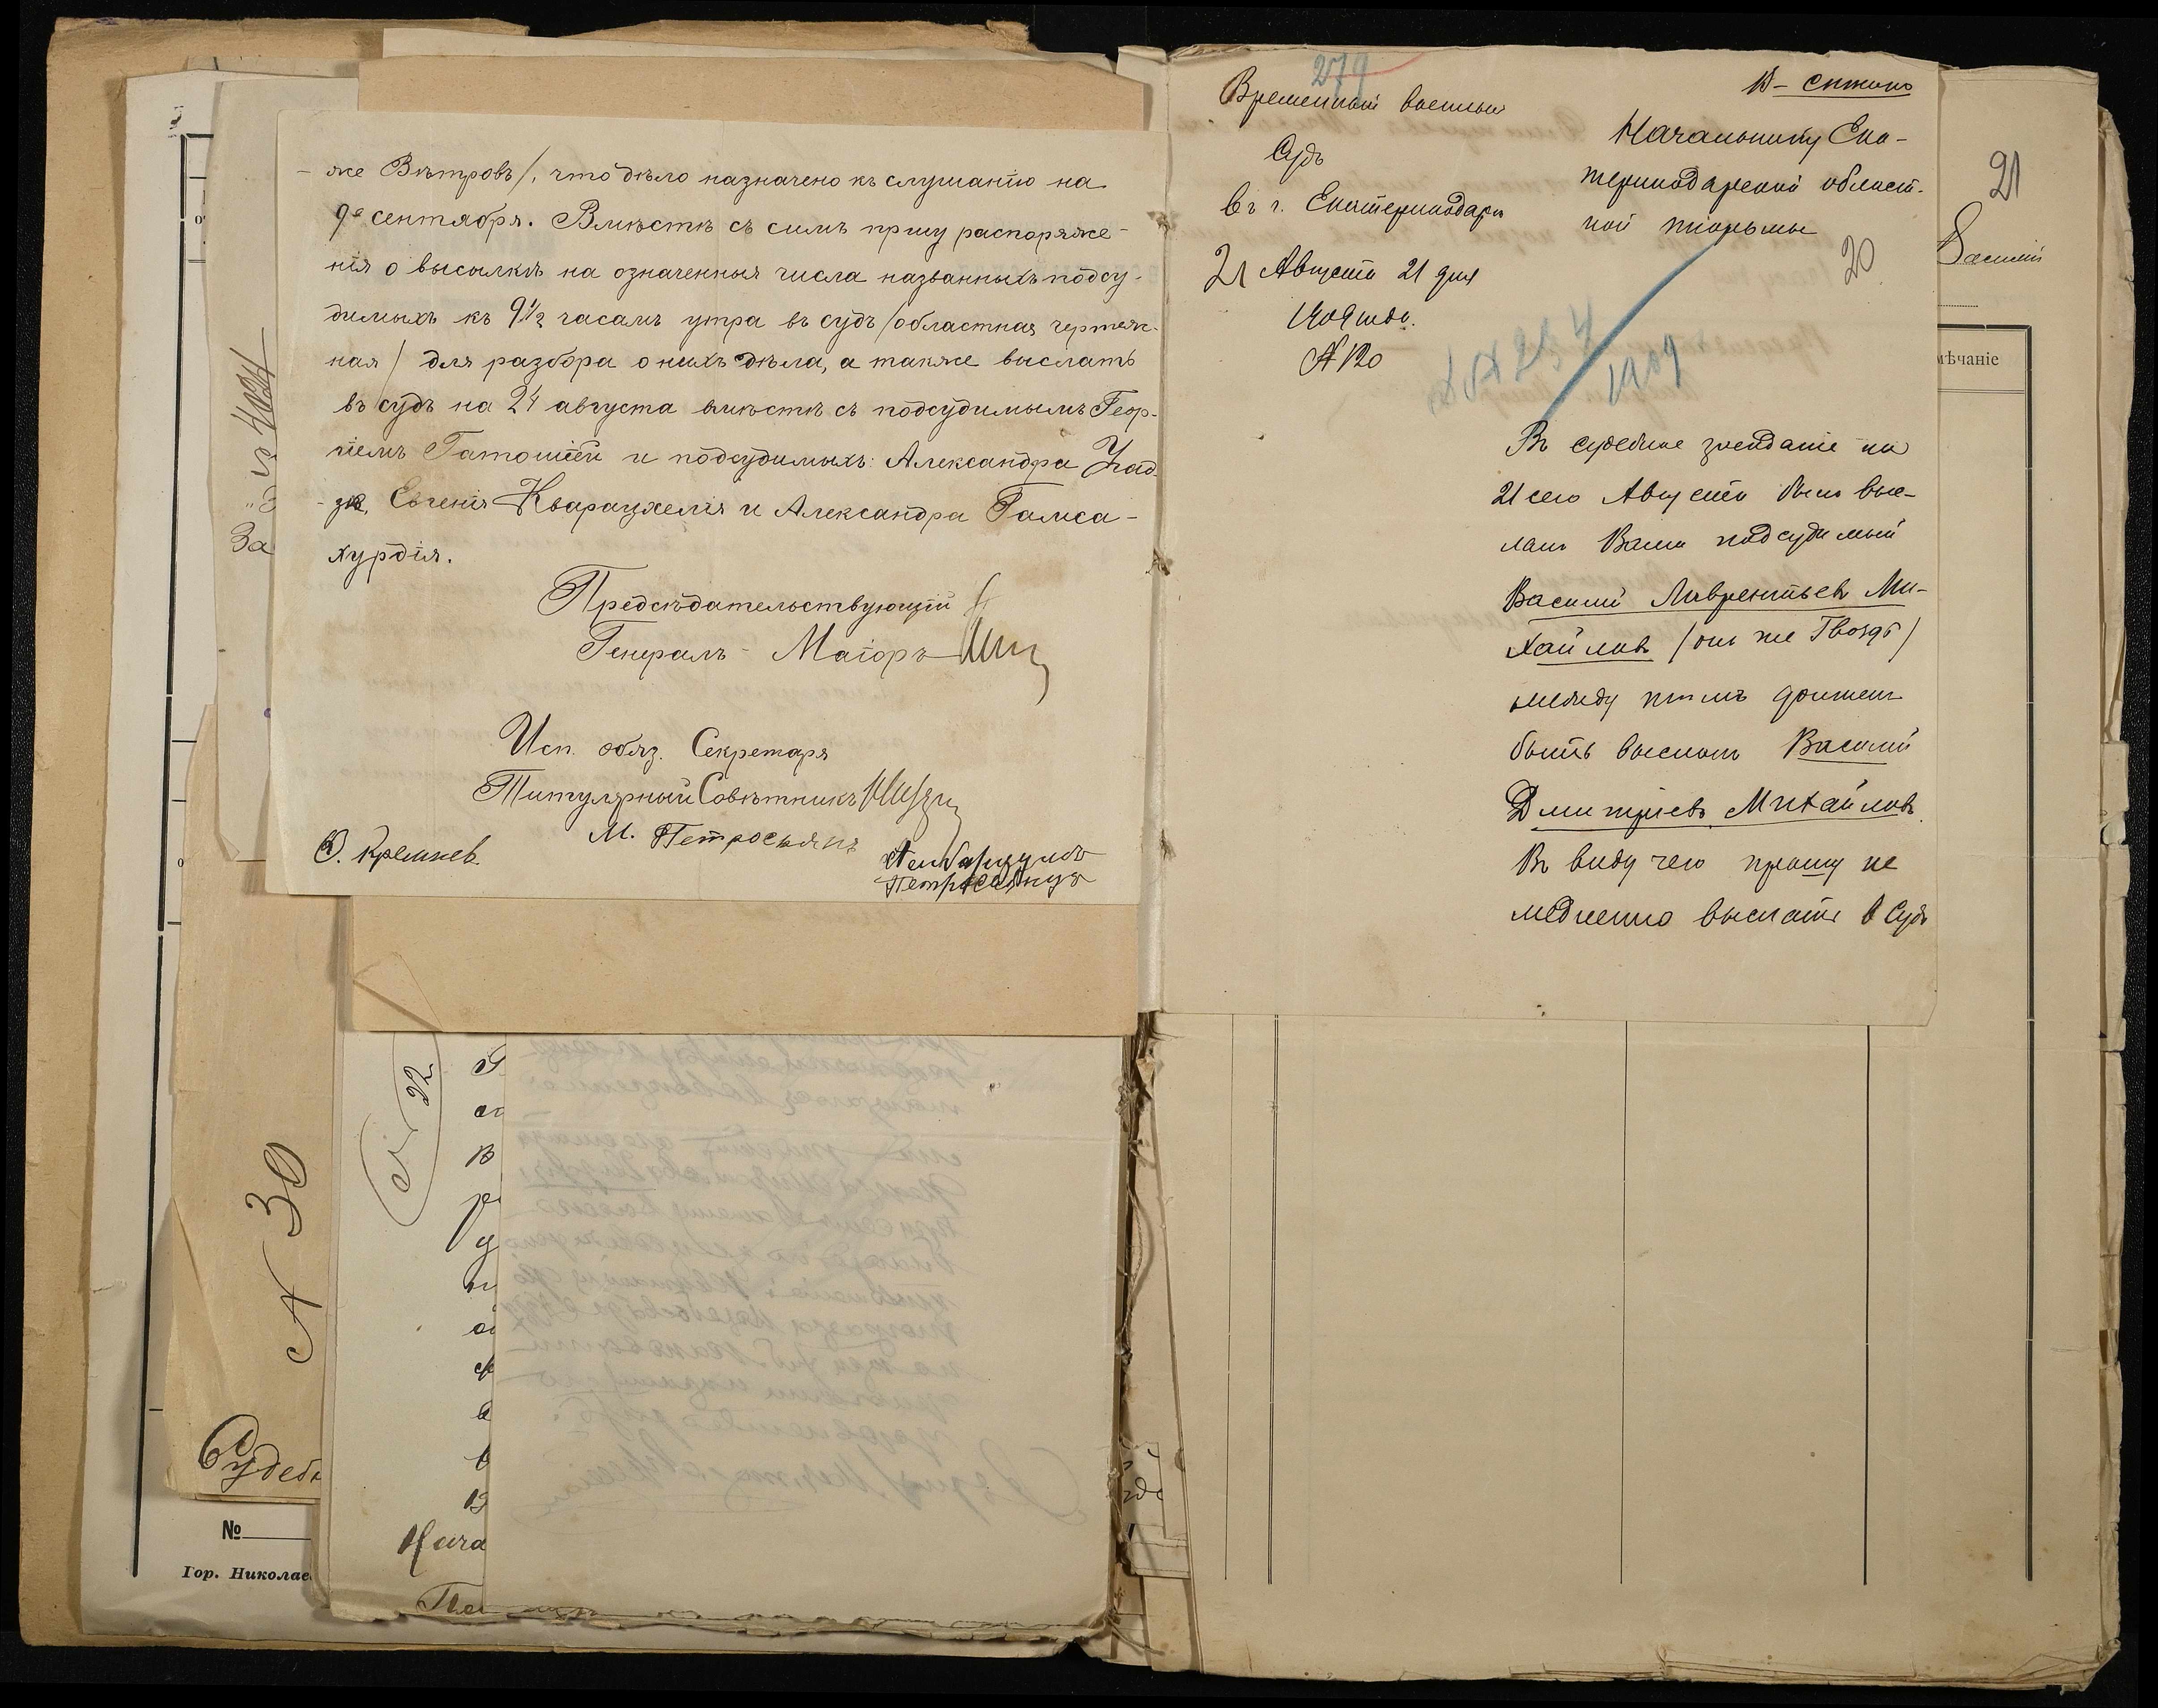 же Вѣтровъ/, что дѣло назначено къ слушанію на
9е сентября. Вмѣстѣ съ симъ прошу распоряже-
нія о высылкѣ на означенныя числа названныхъ подсу-
димыхъ къ 9½ часамъ утра въ судъ /областная чертеж-
ная/ для разбора о нихъ дѣла, а также выслать
въ судъ на 24 августа вмѣстѣ съ подсудимымъ Геор-
гіемъ и подсудимыхъ: Александра
Евгенія Кварацхелія и Александра Гамса-
хурдія.
Предсѣдательствующій
Генералъ-Маіоръ
Исп. обяз. Секретаря
Титулярный Совѣтникъ
М. Петросьянъ
279
Временный военный
Судъ
въ г. Екатеринодарѣ
21 Августа 21 дня
1909 года.
№ 120
Начальнику Ека-
теринодарской област-
ной тюрьмы
20
1909
Въ судебное засѣданіе на
21 сего Августа былъ выс-
ланъ Вами подсудимый
Василій Лаврентьевъ Ми-
хайловъ /онъ же Гвоздь/
между тѣмъ долженъ
быть высланъ Василій
Дмитріевъ Михайловъ.
Въ виду чего прошу не
медленно выслать в Судъ
21
Василій
мѣчаніе
За
22
№ 30
Судебн
№
Гор. Николаев
Нача